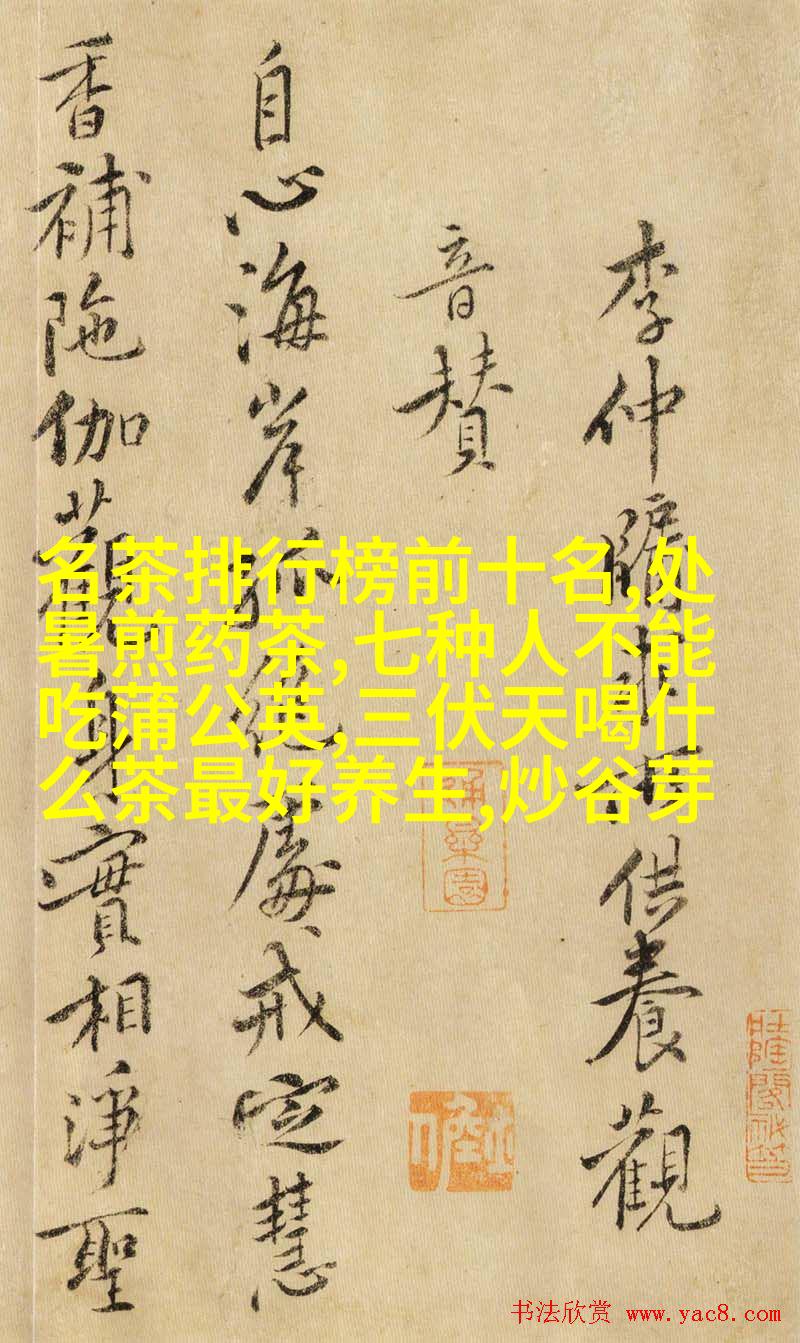 李仲牖求□供養觀
音賛
自心海岸孤絶處戒定慧
香補陁伽觀身實相淨聖
名茶排行榜前十名,处
暑煎药茶,七种人不能
吃蒲公英,三伏天喝什
么茶最好养生,炒谷芽
书法欣赏 www.yac8.com